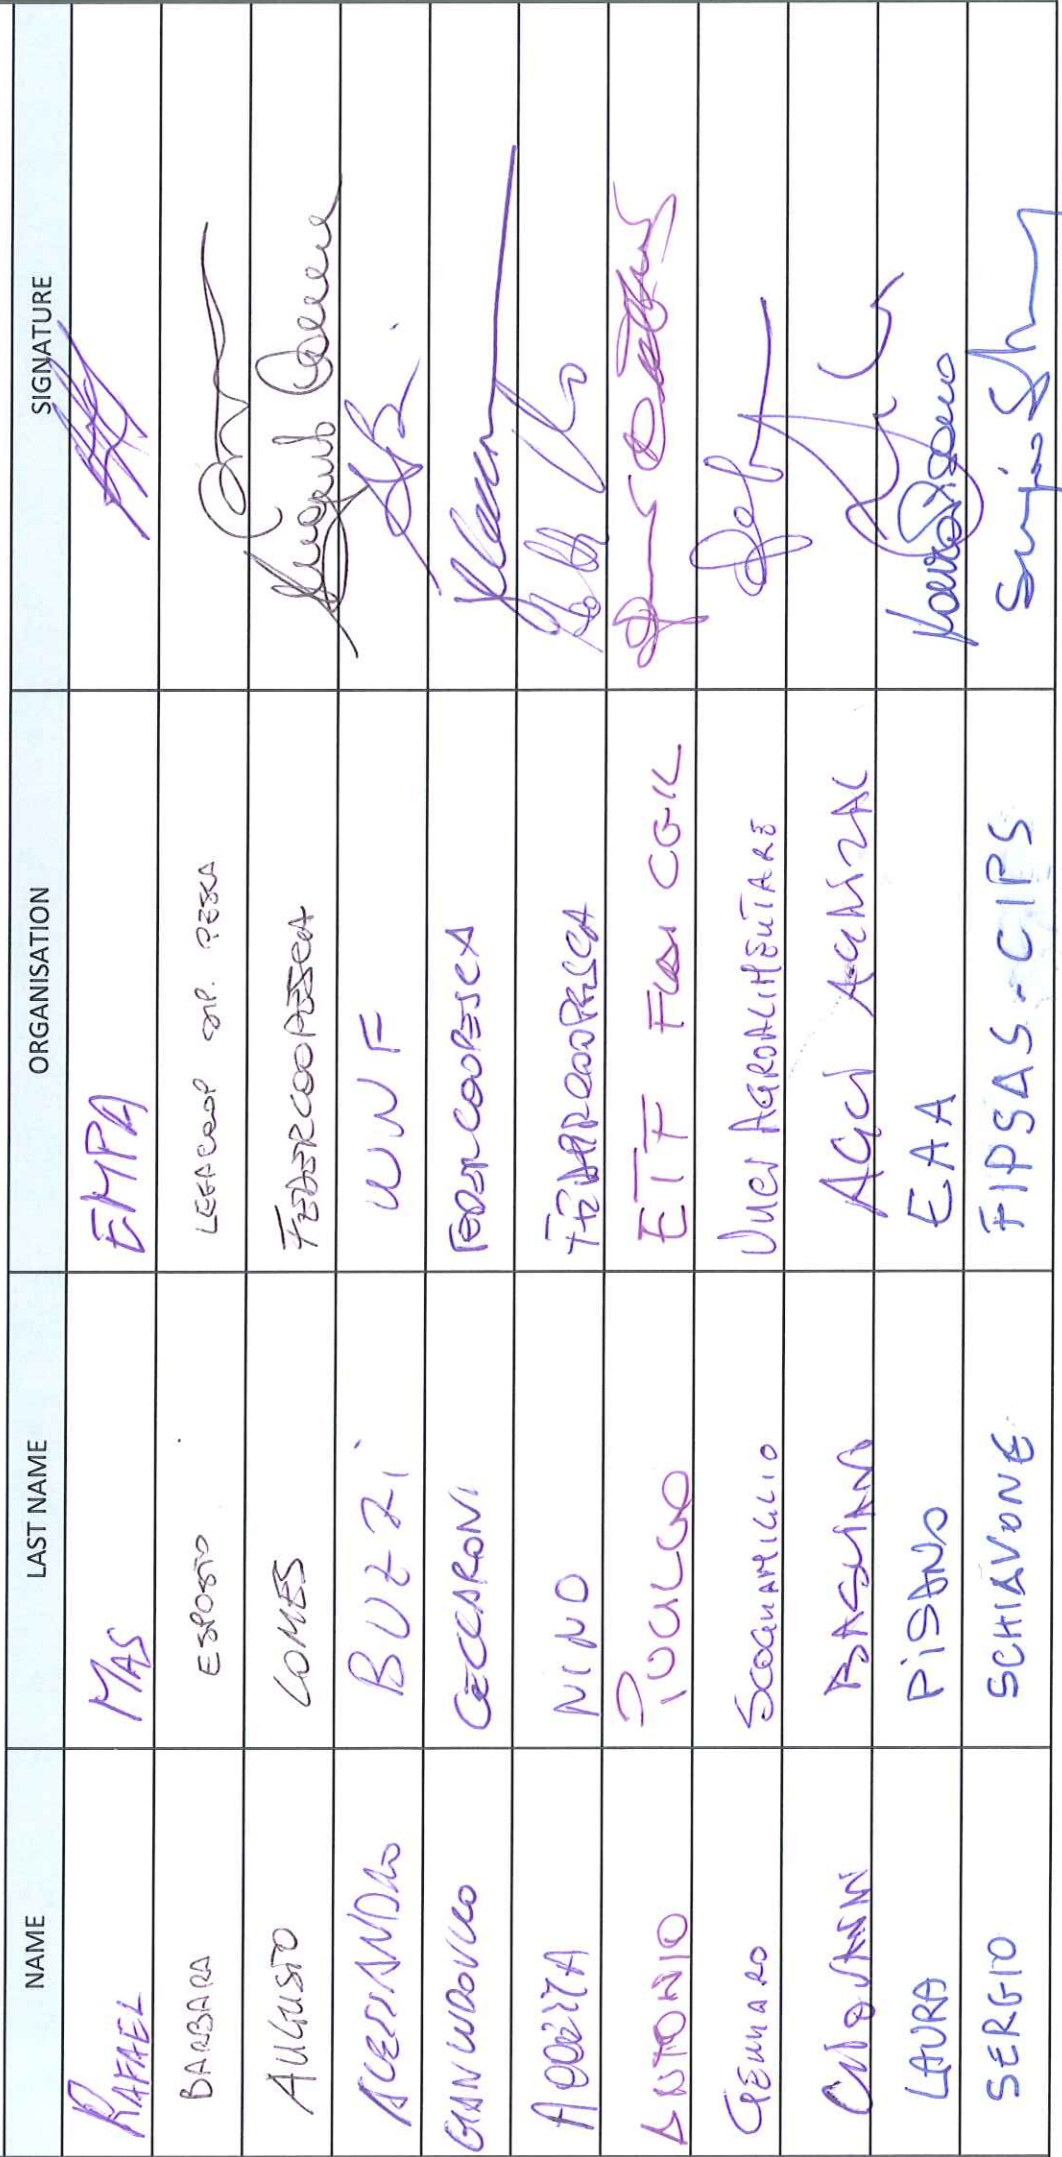 NAME LAST NAME ORGANISATION SIGNATURE
RAFAEL MAS EMPA
BARBARA ESPOSITO LEGACOOP PESCA
AUGUSTO COMES FEDERCOOPESCA
ALESSANDRO BUZZI WWF
GIANLUDOVICO CECCARONI FEDERCOOPESCA
NINO FEDERCOOPESCA
ANTONIO PUCILLO ETF FLAI CGIL
GENNARO SCOGNAMIGLIO UNCI AGROALIMENTARE
GIOVANNI BASCIANO AGCI AGRITAL
LAURA PISANO EAA Laura Pisano
SERGIO SCHIAVONE FIPSAS-CIPS